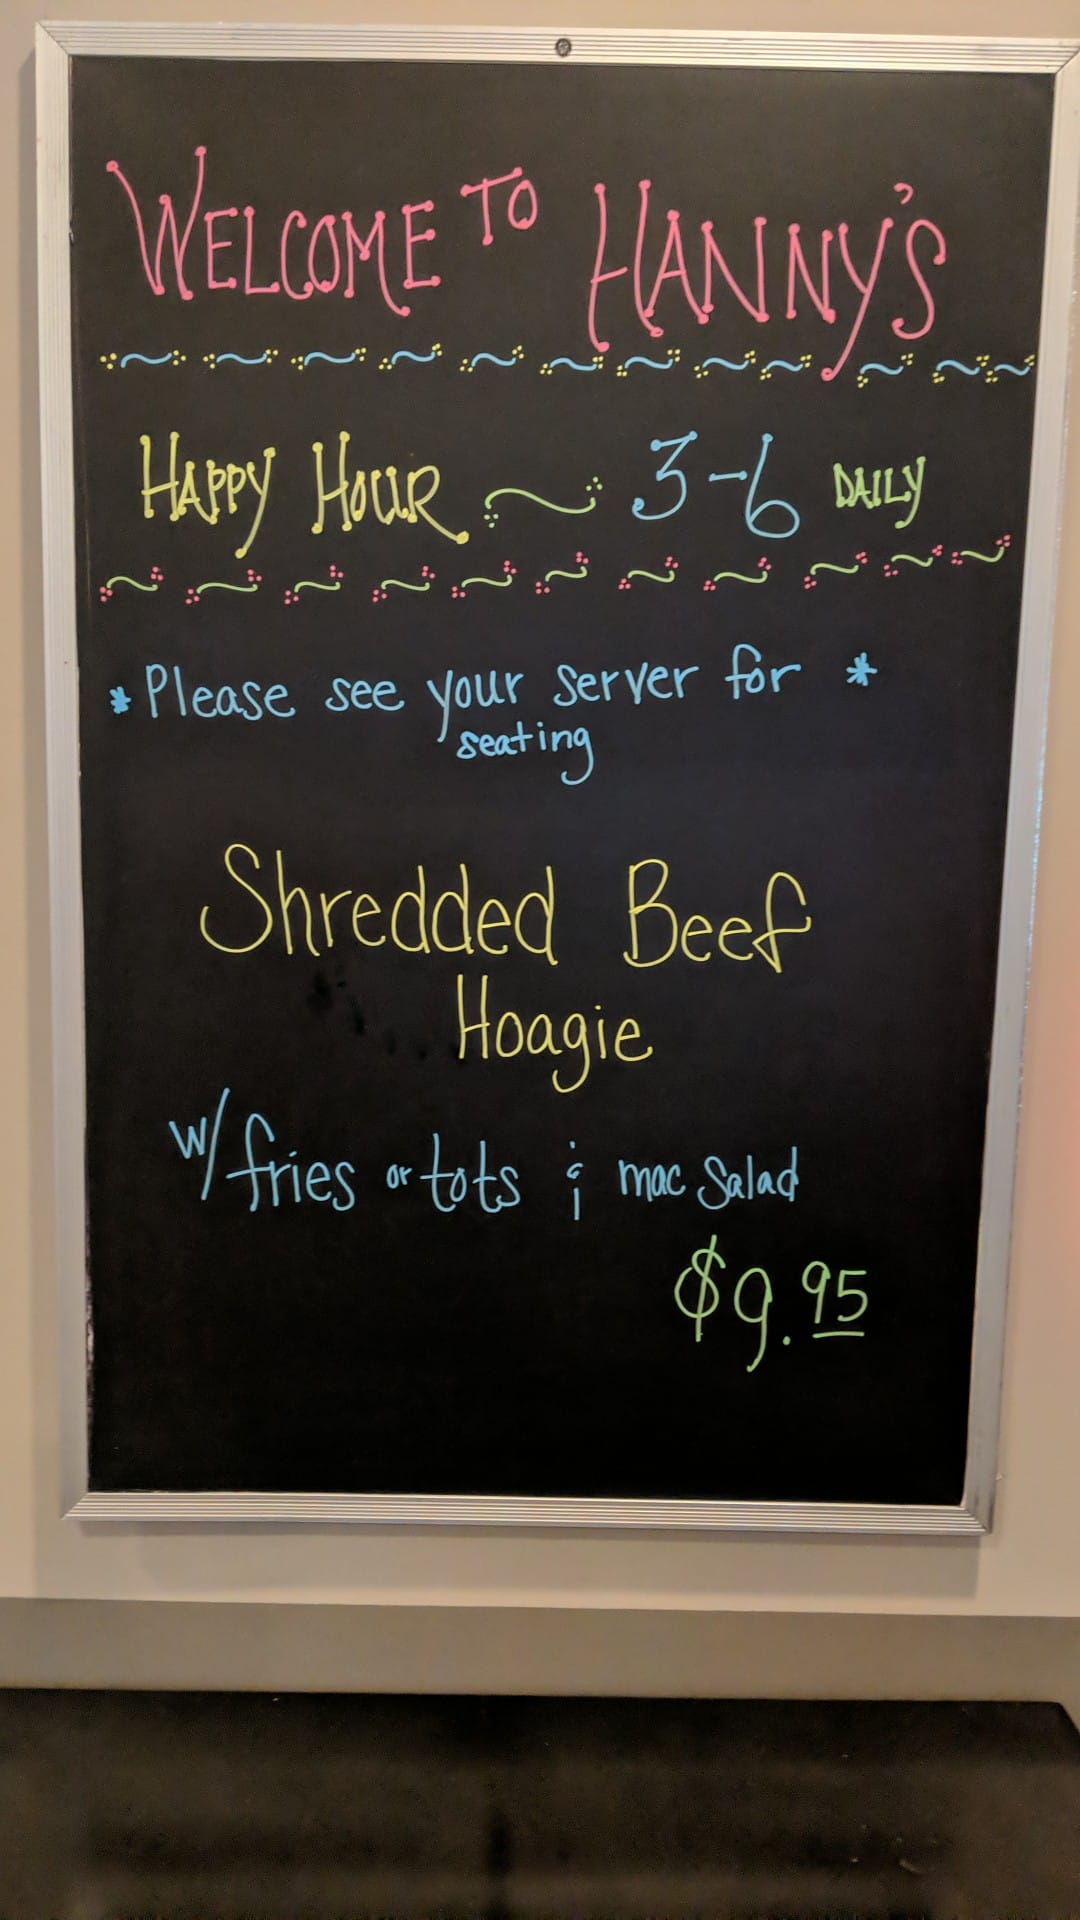 WELCOME TO HANNY'S
HAPPY HOUR ~ 3-6 DAILY
* Please see your server for *
seating
Shredded Beef
Hoagie
w/ fries or tots & mac Salad
$9.95